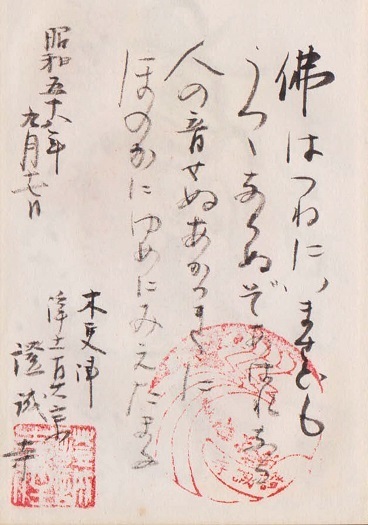 佛はつねにいませども
うつゝならぬぞあはれなる
人の音せぬあかつきに
ほのかにゆめにみえたまふ
昭和五十六年
九月十七日
木更津
浄土真宗
證誠寺